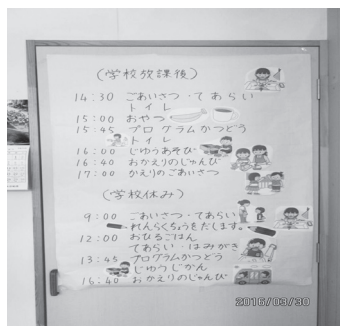 (学校放課後)
14:30 ごあいさつ・てあらい
トイレ
15:00 おやつ
15:45 プログラムかつどう
トイレ
16:00 じゆうあそび
16:40 おかえりのじゅんび
17:00 かえりのごあいさつ
(学校休み)
9:00 ごあいさつ・てあらい
れんらくちょうをだします。
12:00 おひるごはん
てあらい・はみがき
13:45 プログラムかつどう
じゆうじかん
16:40 おかえりのじゅんび
2016/03/30